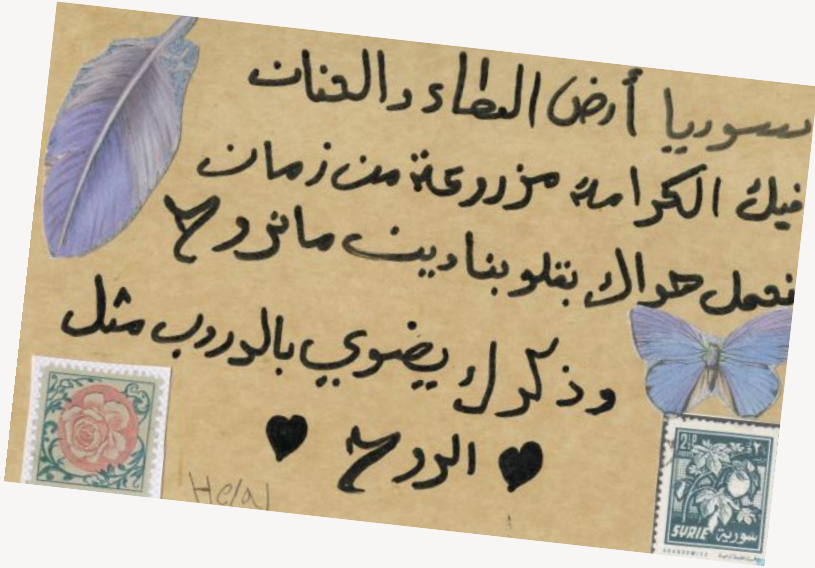 سوريا أرض العطاء والحنان
فيك الكرامة مزروعة من زمان
نعمل هواك بقلوبنا وين ما نروح
وذكرك يضوي بالدروب مثل
الروح
Helal
2½P
SYRIE سورية